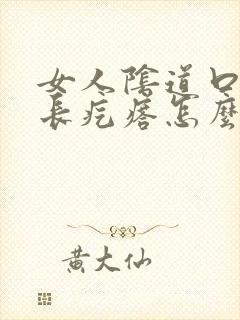 女人陰道口
長疙瘩怎麼
黃大仙